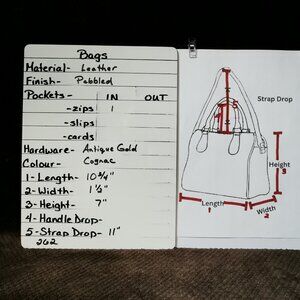 Bags
Material- Leather
Finish- Pebbled
Pockets- IN OUT
-zips 1
-slips
-cards
Hardware- Antique Gold
Colour- Cognac
1-Length- 10 3/4"
2-Width- 1 1/2"
3-Height- 7"
4-Handle Drop-
5-Strap Drop- 11"
262
Strap Drop
5
4
Height
3
Length
1
Width
2